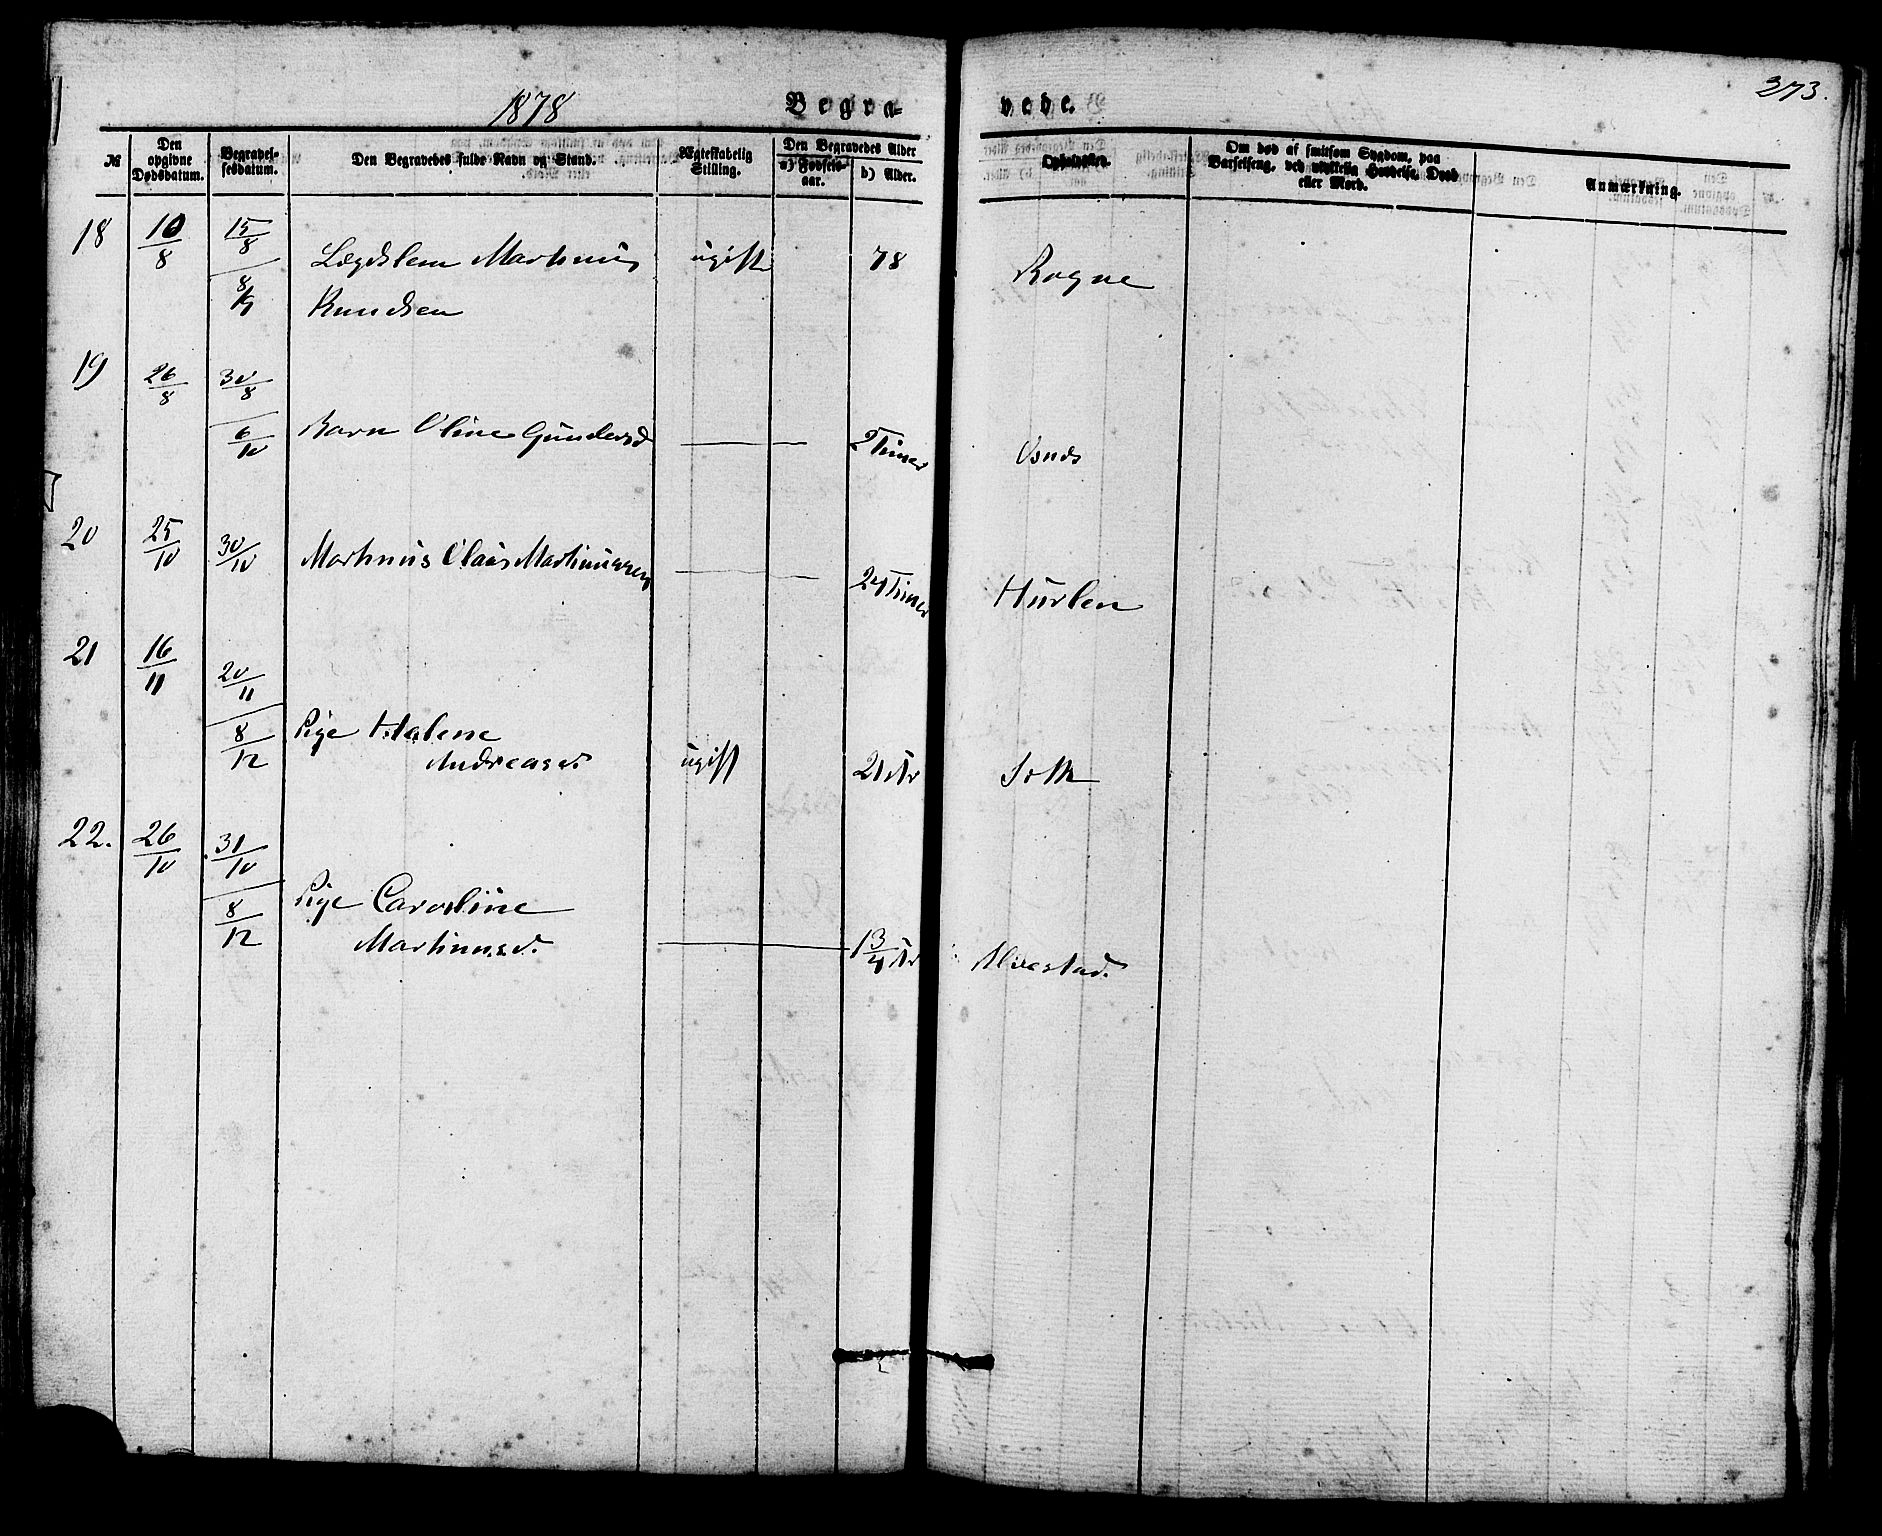 273.
1878 Begra- vede.
№ Den opgivne Dødsdatum. Begravelsesdatum. Den Begravedes fulde Navn og Stand. Ægteskabelig Stilling. Den Begravedes Alder a) Fødselsaar. b) Alder. Opholdssted. Om død af smitsom Sygdom, paa Barselseng, ved ulykkelig Hændelse, Drab eller Mord. Anmærkning.
18 10/8 15/8 Lægdslem Martinus ugift 78 Rogne
8/9 Knudsen
19 26/8 30/8
6/10 Barn Oline Gundersd — 2 Timer
20 25/10 30/10 Martinus Olaus Martinussen — 24 Timer Hurlen
21 16/11 20/11
8/12 Pige Halene
Andreasd. ugift 21 Ar
22. 26/10 31/10
8/12 Pige Caroline
Martinusd. — 1 3/4 Ar Alvestad.